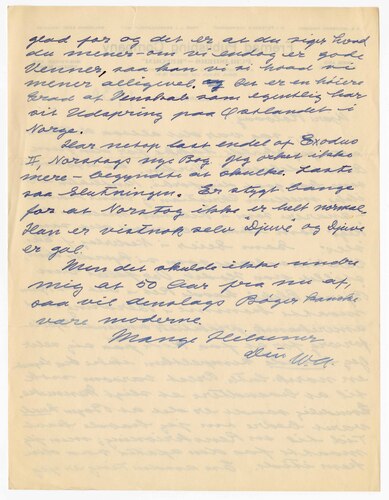 glad for og det er at du siger hvad
du mener - om vi endog er gode
Venner, saa kan vi si hvad vi
mener alligevel, og det er en høiere
Grad af Venskab som egentlig har
sit Udspring paa Østlandet i
Norge.
Har netop læst endel af Exodus
II, Norstogs nye Bog. Jeg orket ikke
mere - begyndte at skulke. Læste
saa Slutningen. Er stygt bange
for at Norstog ikke er helt normal.
Han er vistnok selv "Djuve" og Djuve
er gal.
Men det skulde ikke undre
mig at 50 Aar fra nu af,
saa vil denslags Bøger kanske
være moderne.
Mange Hilsener
Din W.A.